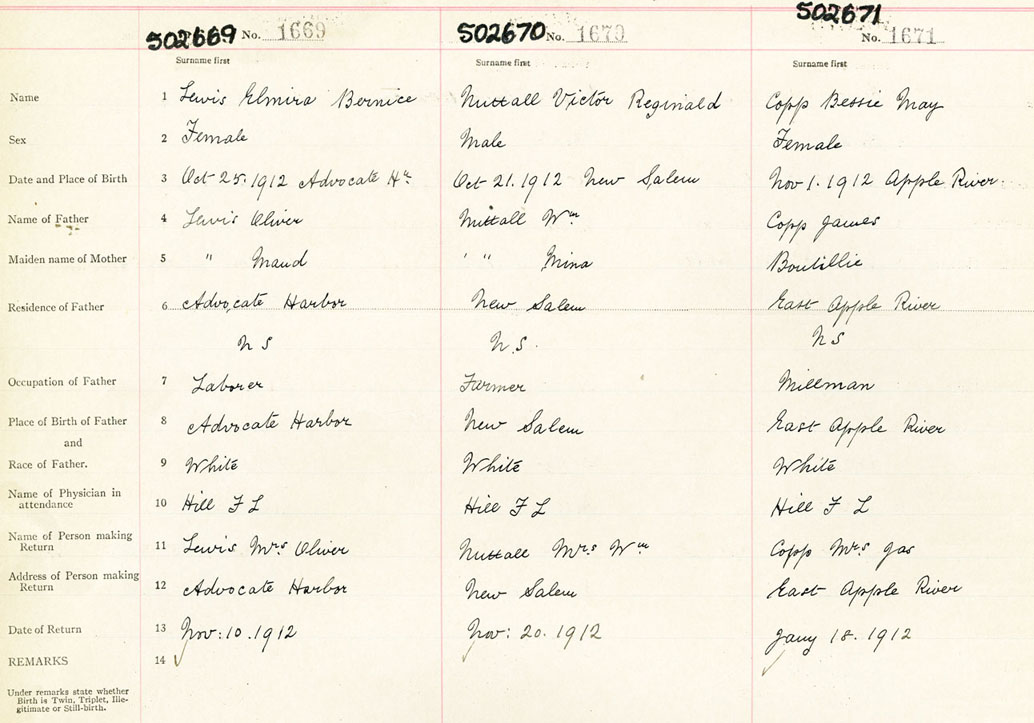 502669 No. 1669 502670 No. 1670 502671 No. 1671
Surname first Surname first Surname first
Name 1 Lewis Elmira Bernice Nuttall Victor Reginald Copp Bessie May
Sex 2 Female Male Female
Date and Place of Birth 3 Oct 25. 1912 Advocate Hr. Oct 21. 1912 New Salem Nov 1. 1912 Apple River
Name of Father 4 Lewis Oliver Nuttall Wm Copp James
Maiden name of Mother 5 " Maud " " Mina Boutillie
Residence of Father 6 Advocate Harbor New Salem East Apple River
N S N.S. N S
Occupation of Father 7 Laborer Farmer Millman
Place of Birth of Father 8 Advocate Harbor New Salem East Apple River
and
Race of Father. 9 White White White
Name of Physician in
attendance 10 Hill F L Hill F L Hill F L
Name of Person making
Return 11 Lewis Mrs Oliver Nuttall Mrs Wm Copp Mrs Jas
Address of Person making
Return 12 Advocate Harbor New Salem East Apple River
Date of Return 13 Nov: 10. 1912 Nov: 20. 1912 Jany 18. 1912
REMARKS 14
Under remarks state whether
Birth is Twin, Triplet, Ille-
gitimate or Still-birth.